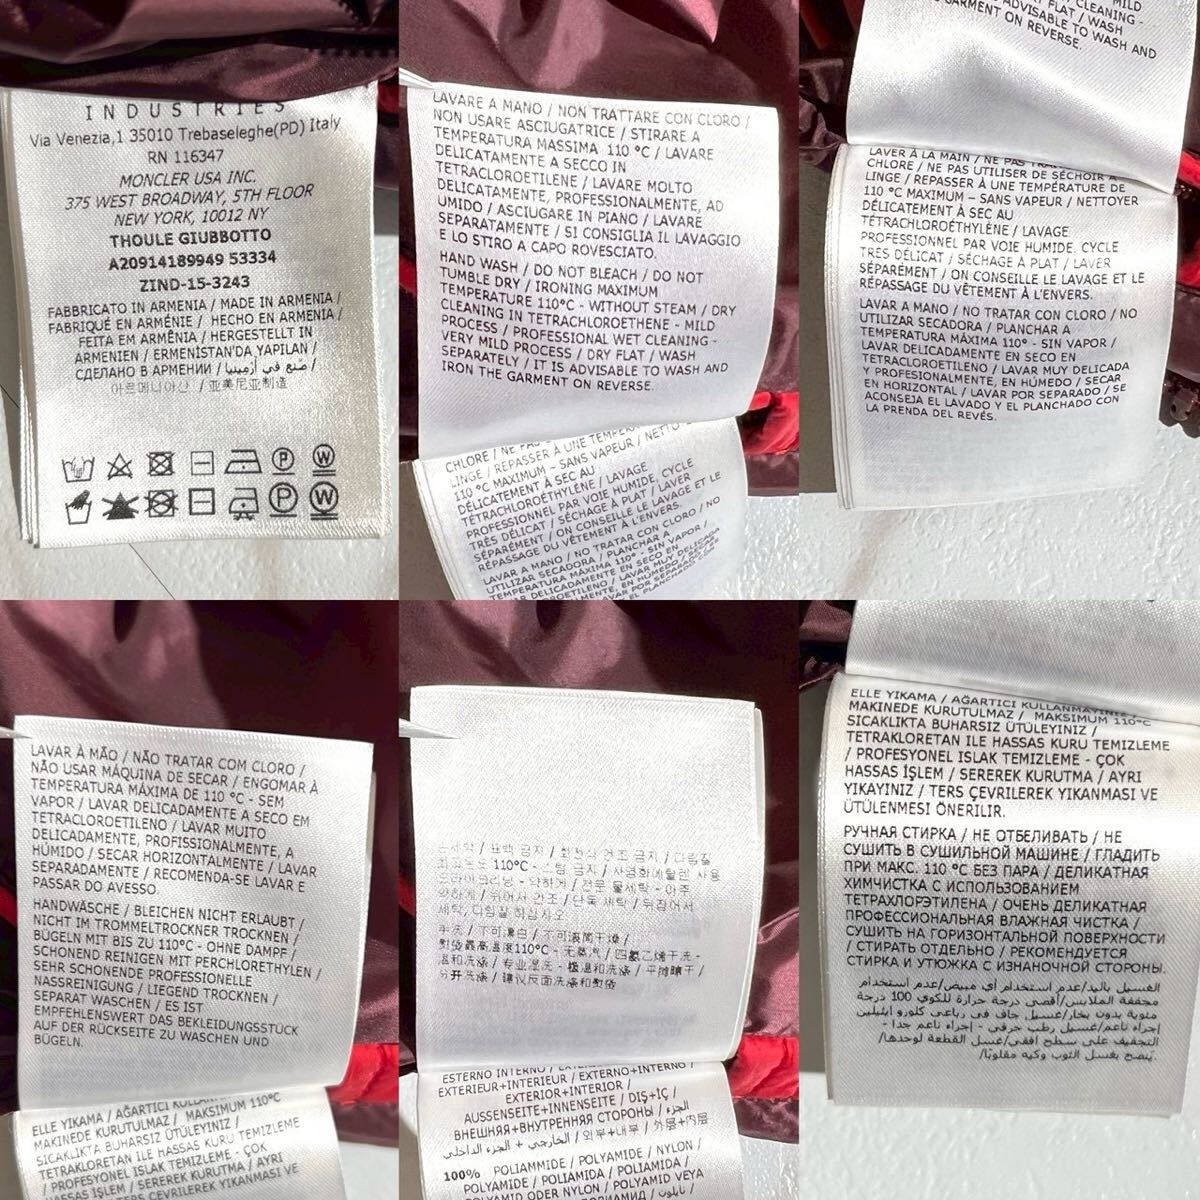 INDUSTRIES
Via Venezia,1 35010 Trebaseleghe(PD) Italy
RN 116347
MONCLER USA INC.
375 WEST BROADWAY, 5TH FLOOR
NEW YORK, 10012 NY
THOULE GIUBBOTTO
A20914189949 53334
ZIND-15-3243
FABBRICATO IN ARMENIA / MADE IN ARMENIA /
FABRIQUÉ EN ARMÉNIE / HECHO EN ARMENIA /
FEITA EM ARMÊNIA / HERGESTELLT IN
ARMENIEN / ERMENISTAN'DA YAPILAN /
СДЕЛАНО В АРМЕНИИ / صنع في أرمينيا /
아르메니아산 / 亚美尼亚制造
LAVARE A MANO / NON TRATTARE CON CLORO /
NON USARE ASCIUGATRICE / STIRARE A
TEMPERATURA MASSIMA 110 °C / LAVARE
DELICATAMENTE A SECCO IN
TETRACLOROETILENE / LAVARE MOLTO
DELICATAMENTE, PROFESSIONALMENTE, AD
UMIDO / ASCIUGARE IN PIANO / LAVARE
SEPARATAMENTE / SI CONSIGLIA IL LAVAGGIO
E LO STIRO A CAPO ROVESCIATO.
HAND WASH / DO NOT BLEACH / DO NOT
TUMBLE DRY / IRONING MAXIMUM
TEMPERATURE 110°C - WITHOUT STEAM / DRY
CLEANING IN TETRACHLOROETHENE - MILD
PROCESS / PROFESSIONAL WET CLEANING -
VERY MILD PROCESS / DRY FLAT / WASH
SEPARATELY / IT IS ADVISABLE TO WASH AND
IRON THE GARMENT ON REVERSE.
CHLORE / NE PAS
LINGE / REPASSER À UNE
110 °C MAXIMUM – SANS VAPEUR / NETTO
DÉLICATEMENT À SEC AU
TÉTRACHLOROÉTHYLÈNE / LAVAGE
PROFESSIONNEL PAR VOIE HUMIDE. CYCLE
TRÈS DÉLICAT / SÉCHAGE À PLAT / LAVER
SÉPARÉMENT / ON CONSEILLE LE LAVAGE ET LE
RÉPASSAGE DU VÊTEMENT À L'ENVERS.
LAVAR A MANO / NO TRATAR CON CLORO / NO
UTILIZAR SECADORA / PLANCHAR A
TEMPERATURA MÁXIMA 110° - SIN VAPOR /
LAVAR DELICADAMENTE EN SECO EN
TETRACLOROETILENO / LAVAR MUY DELICADA
EN HÚMEDO / SECAR
LAVAR POR SEPARADO
PLANCHADO CON
MILD
CLEANING -
FLAT / WASH
ADVISABLE TO WASH AND
GARMENT ON REVERSE.
LAVER À LA MAIN / NE PAS
CHLORE / NE PAS UTILISER DE SÉCHOIR À
LINGE / REPASSER À UNE TEMPÉRATURE DE
110 °C MAXIMUM – SANS VAPEUR / NETTOYER
DÉLICATEMENT À SEC AU
TÉTRACHLOROÉTHYLÈNE / LAVAGE
PROFESSIONNEL PAR VOIE HUMIDE. CYCLE
TRÈS DÉLICAT / SÉCHAGE À PLAT / LAVER
SÉPARÉMENT / ON CONSEILLE LE LAVAGE ET LE
RÉPASSAGE DU VÊTEMENT À L'ENVERS.
LAVAR A MANO / NO TRATAR CON CLORO / NO
UTILIZAR SECADORA / PLANCHAR A
TEMPERATURA MÁXIMA 110° - SIN VAPOR /
LAVAR DELICADAMENTE EN SECO EN
TETRACLOROETILENO / LAVAR MUY DELICADA
Y PROFESIONALMENTE, EN HÚMEDO / SECAR
EN HORIZONTAL / LAVAR POR SEPARADO / SE
ACONSEJA EL LAVADO Y EL PLANCHADO CON
LA PRENDA DEL REVÉS.
LAVAR À MÃO / NÃO TRATAR COM CLORO /
NÃO USAR MÁQUINA DE SECAR / ENGOMAR À
TEMPERATURA MÁXIMA DE 110 °C - SEM
VAPOR / LAVAR DELICADAMENTE A SECO EM
TETRACLOROETILENO / LAVAR MUITO
DELICADAMENTE, PROFISSIONALMENTE, A
HÚMIDO / SECAR HORIZONTALMENTE / LAVAR
SEPARADAMENTE / RECOMENDA-SE LAVAR E
PASSAR DO AVESSO.
HANDWÄSCHE / BLEICHEN NICHT ERLAUBT /
NICHT IM TROMMELTROCKNER TROCKNEN /
BÜGELN MIT BIS ZU 110°C - OHNE DAMPF /
SCHONEND REINIGEN MIT PERCHLORETHYLEN /
SEHR SCHONENDE PROFESSIONELLE
NASSREINIGUNG / LIEGEND TROCKNEN /
SEPARAT WASCHEN / ES IST
EMPFEHLENSWERT DAS BEKLEIDUNGSSTÜCK
AUF DER RÜCKSEITE ZU WASCHEN UND
BÜGELN.
ELLE YIKAMA / AĞARTICI
MAKINEDE KURUTULMAZ / MAKSIMUM 110°C
SICAKLIKTA BUHARSIZ ÜTÜLEYINIZ /
TETRAKLORETAN ILE HASSAS KURU TEMIZLEME
/ PROFESYONEL ISLAK TEMIZLEME - ÇOK
HASSAS İŞLEM / SEREREK KURUTMA / AYRI
YIKAYINIZ / TERS ÇEVRILEREK YIKANMASI VE
손세탁 / 표백 금지 / 회전식 건조 금지 / 다림질
최고온도 110°C - 스팀 금지 / 사염화에틸렌 사용
드라이크리닝 - 약하게 / 전문 물세탁 - 아주
약하게 / 뉘어서 건조 / 단독 세탁 / 뒤집어서
세탁, 다림질 하십시오.
手洗 / 不可漂白 / 不可滚筒干燥 /
熨烫最高温度110°C - 无蒸汽 / 四氯乙烯干洗 -
温和洗涤 / 专业湿洗 - 极温和洗涤 / 平摊晾干 /
分开洗涤 / 建议反面洗涤和熨烫
ESTERNO INTERNO /
EXTERIEUR+INTERIEUR / EXTERNO+INTERNO /
EXTERIOR+INTERIOR /
AUSSENSEITE+INNENSEITE / DIŞ+İÇ /
ВНЕШНЯЯ+ВНУТРЕННЯЯ СТОРОНЫ / الجزء
الخارجي + الجزء الداخلي / 외부+내부 / 外层+内层
100% POLIAMMIDE / POLYAMIDE / NYLON /
POLYAMIDE / POLIAMIDA / POLIAMIDA /
POLYAMID ODER NYLON / POLYAMID VEYA
ПОЛИАМИД / نايلون /
ELLE YIKAMA / AĞARTICI KULLANMAYINIZ
MAKINEDE KURUTULMAZ / MAKSIMUM 110°C
SICAKLIKTA BUHARSIZ ÜTÜLEYINIZ /
TETRAKLORETAN ILE HASSAS KURU TEMIZLEME
/ PROFESYONEL ISLAK TEMIZLEME - ÇOK
HASSAS İŞLEM / SEREREK KURUTMA / AYRI
YIKAYINIZ / TERS ÇEVRILEREK YIKANMASI VE
ÜTÜLENMESI ÖNERILIR.
РУЧНАЯ СТИРКА / НЕ ОТБЕЛИВАТЬ / НЕ
СУШИТЬ В СУШИЛЬНОЙ МАШИНЕ / ГЛАДИТЬ
ПРИ МАКС. 110 °C БЕЗ ПАРА / ДЕЛИКАТНАЯ
ХИМЧИСТКА С ИСПОЛЬЗОВАНИЕМ
ТЕТРАХЛОРЭТИЛЕНА / ОЧЕНЬ ДЕЛИКАТНАЯ
ПРОФЕССИОНАЛЬНАЯ ВЛАЖНАЯ ЧИСТКА /
СУШИТЬ НА ГОРИЗОНТАЛЬНОЙ ПОВЕРХНОСТИ
/ СТИРАТЬ ОТДЕЛЬНО / РЕКОМЕНДУЕТСЯ
СТИРКА И УТЮЖКА С ИЗНАНОЧНОЙ СТОРОНЫ.
الغسيل باليد/عدم استخدام أي مبيض/عدم استخدام
مجففة الملابس/أقصى درجة حرارة للكوي 100 درجة
مئوية بدون بخار/غسيل جاف في رباعي كلورو ايثيلين
إجراء ناعم/غسيل رطب حرفي - إجراء ناعم جدا -
التجفيف على سطح افقي/غسل القطعة لوحدها/
ينصح بغسل الثوب وكيه مقلوبًا/.